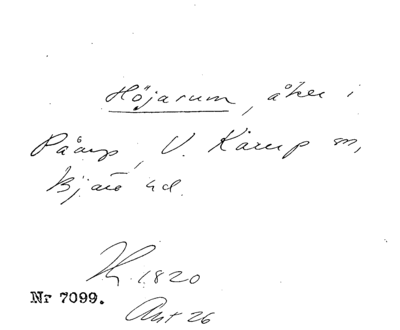 Höjarum, åker i
Påarp, V. Karup sn,
Bjäre hd.
1820
Nr 7099.
Akt 26